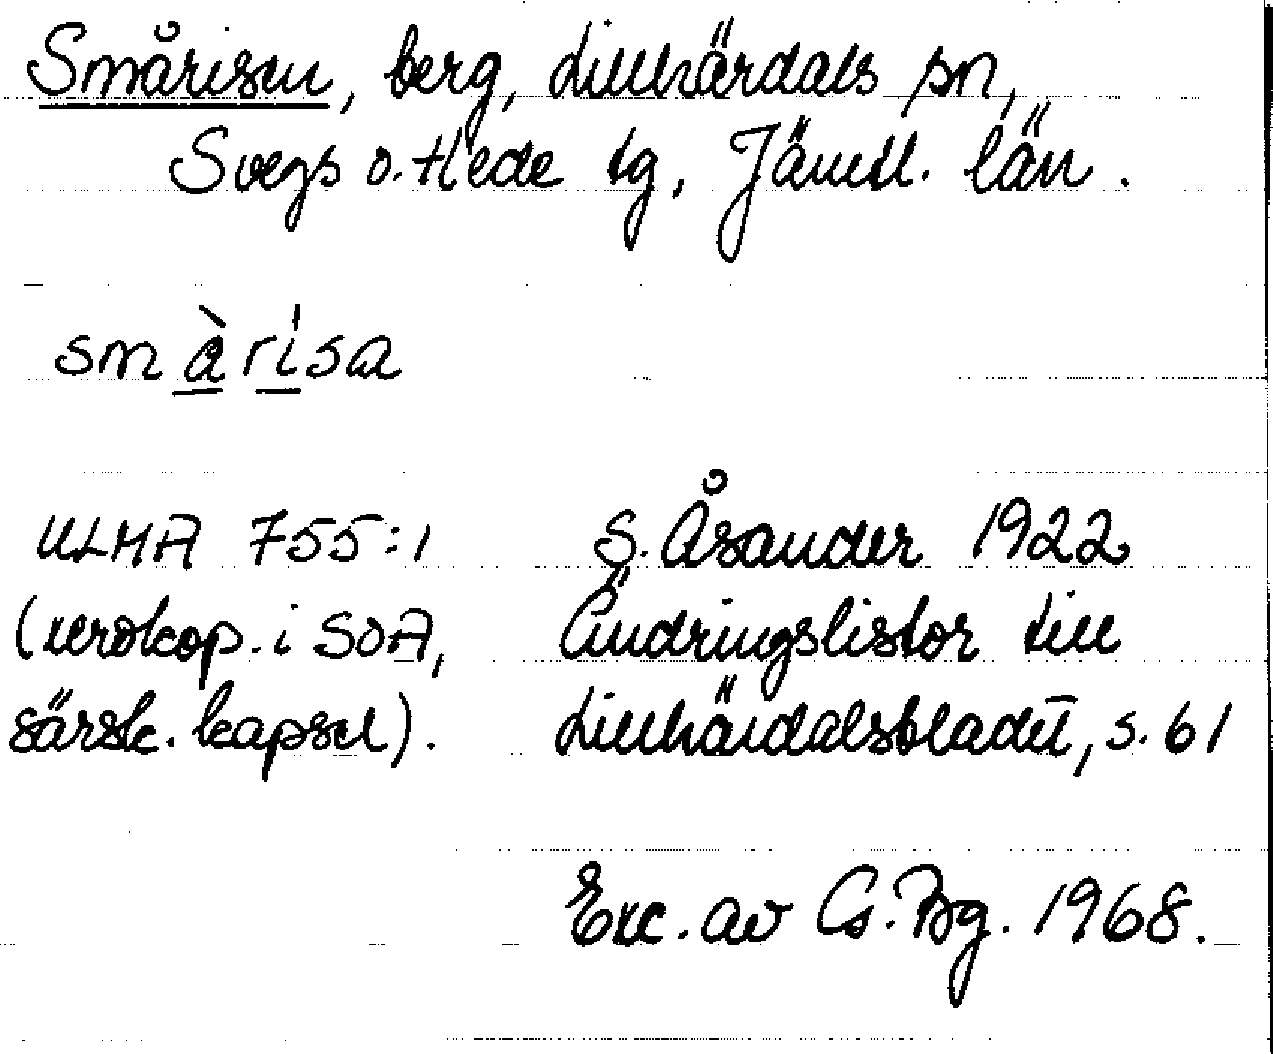 Smårisen, berg, Lillhärdals sn,
Svegs o. Hede tg, Jämtl. län.
smàrísa
ULMA 755:1 S. Åsander 1922
(xerokop. i SOA, Ändringslistor till
särsk. kapsel). Lillhärdalsbladet, s. 61
Exc. av Cs. Bg. 1968.